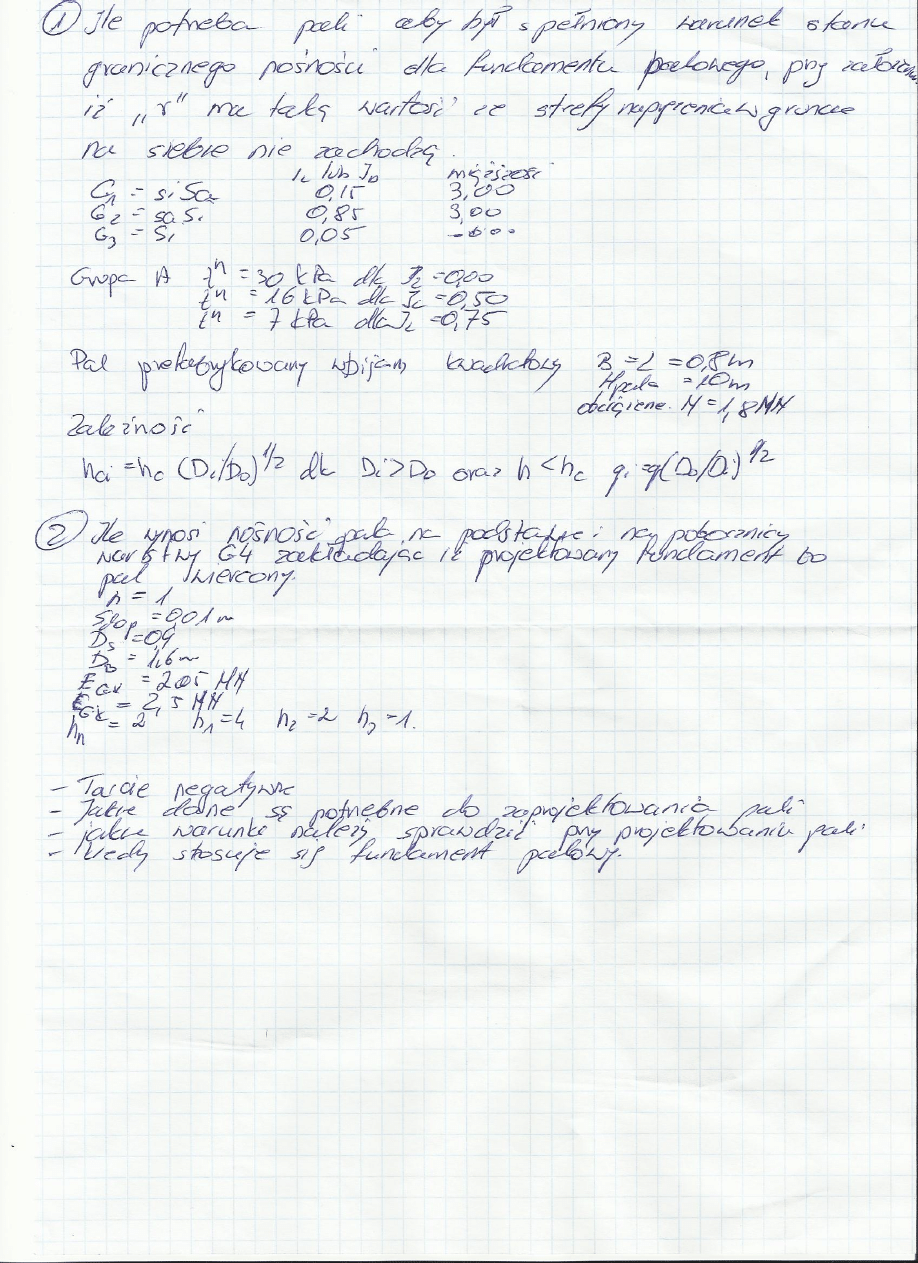 ① Ile potrzeba pali żeby był spełniony warunek stanu
granicznego nośności dla fundamentu palowego, przy założeniu
iż „r" ma taką wartość że strefy naprężenia w gruncie
na siebie nie zachodzą.
IL lub ID miąższość
G1 = siSa 0,15 3,00
G2 = saSi 0,85 3,00
G3 = Si 0,05
Grupa A t^n = 30 kPa dla IL = 0,00
t^n = 16 kPa dla IL = 0,50
t^n = 7 kPa dla IL = 0,75
Pal prefabrykowany wbijany kwadratowy B = L = 0,8m
Hpala = 10m
obciążenie. N = 1,8MN
Zależność
hci = hc (Di/D0)^1/2 dla Di > D0 oraz h < hc qi = q(D0/Di)^1/2
② Ile wynosi nośność pala na podstawie i na pobocznicy
warstwy G4 zakładając iż projektowany fundament to
pal wiercony.
n = 1
Sdop = 0,01 m
Ds = 0,4
DB = 1,6m
= 205 MN
= 2,5 MN
hn = 2 h1 = 4 h2 = 2 h3 = 1.
- Tarcie negatywne
- Jakie dane są potrzebne do zaprojektowania pali
- jakie warunki należy sprawdzić przy projektowaniu pali
- Kiedy stosuje się fundament palowy.